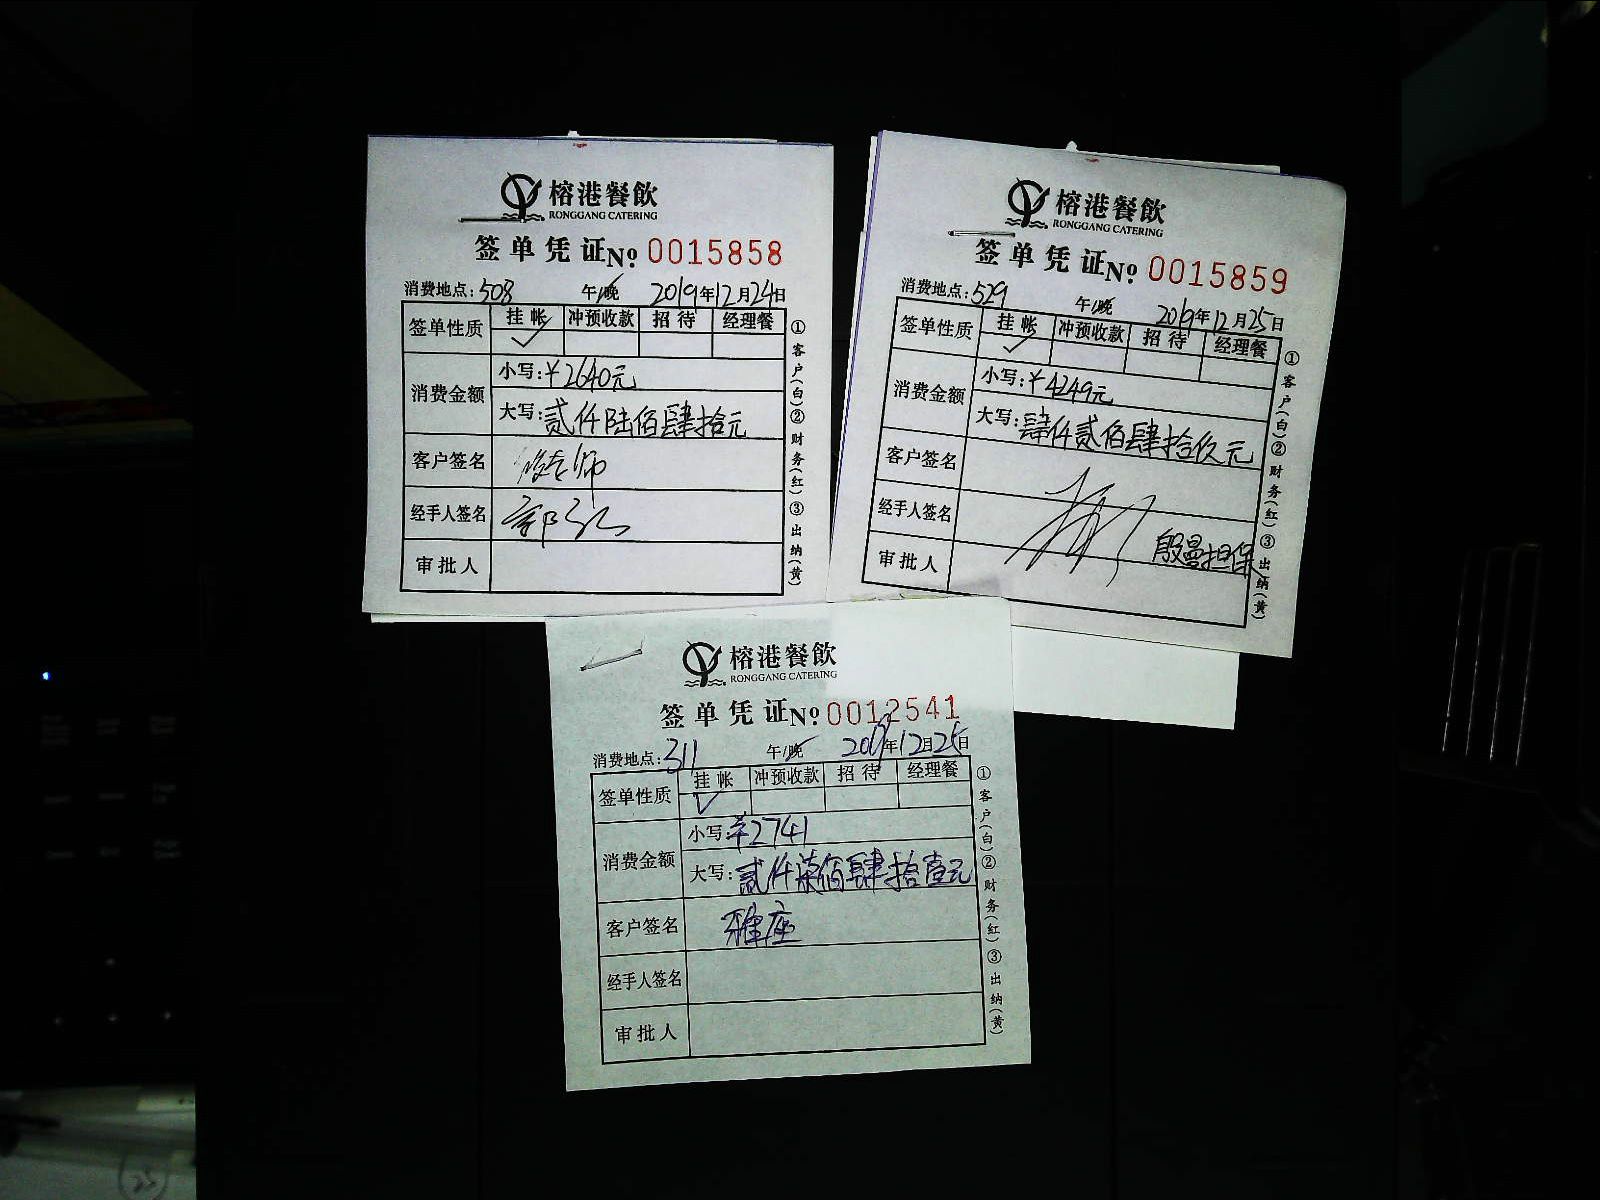 榕港餐飲
RONGGANG CATERING
签单凭证№ 0015858
消费地点:508 午/晚 2019年12月24日
签单性质 挂帐 冲预收款 招待 经理餐
✓
消费金额
小写:¥2640元
大写:贰仟陆佰肆拾元
客户签名
经手人签名
审批人
①客户(白)②财务(红)③出纳(黄)
榕港餐飲
RONGGANG CATERING
签单凭证№ 0015859
消费地点:529 午/晚 2019年12月25日
签单性质 挂帐 冲预收款 招待 经理餐
✓
消费金额
小写:¥4249元
大写:肆仟贰佰肆拾玖元
客户签名
经手人签名
殷曼担保
审批人
①客户(白)②财务(红)③出纳(黄)
榕港餐飲
RONGGANG CATERING
签单凭证№ 0012541
消费地点:311 午/晚 2019年12月25日
签单性质 挂帐 冲预收款 招待 经理餐
✓
消费金额
小写:¥2741
大写:贰仟柒佰肆拾壹元
客户签名 雅座
经手人签名
审批人
①客户(白)②财务(红)③出纳(黄)